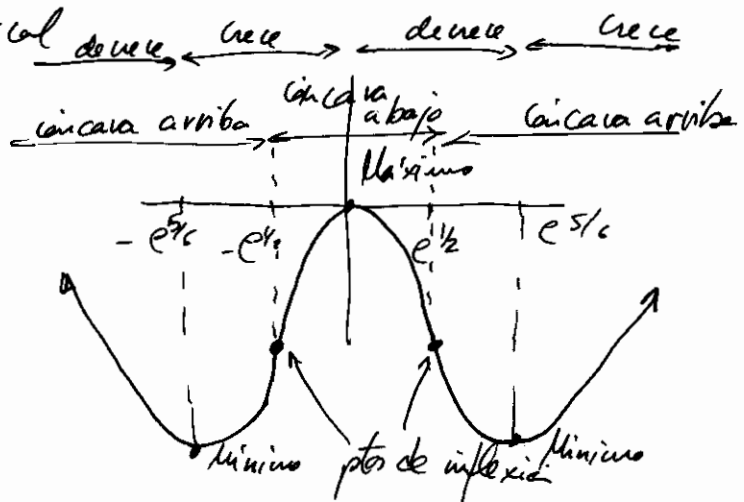 cal
decrece crece decrece crece
cóncava arriba cóncava abajo cóncava arriba
Máximo
- e^5/6 - e^1/2 e^1/2 e^5/6
Mínimo ptos de inflexión Mínimo